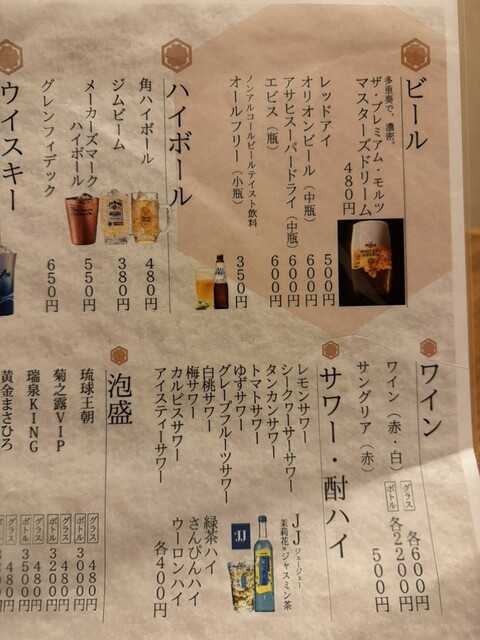 ビール
多重奏で、濃密。
ザ・プレミアム・モルツ
マスターズドリーム
480円
レッドアイ 500円
オリオンビール（中瓶） 600円
アサヒスーパードライ（中瓶） 600円
エビス（瓶） 600円
ノンアルコールビールテイスト飲料
オールフリー（小瓶） 350円
ハイボール
角ハイボール 480円
ジムビーム 380円
メーカーズマーク
ハイボール 550円
グレンフィデック 650円
ウイスキー
ワイン
ワイン（赤・白） グラス 各600円
ボトル 各2200円
サングリア（赤） 500円
サワー・酎ハイ
レモンサワー
シークヮーサーサワー
タンカンサワー
トマトサワー
ゆずサワー
グレープフルーツサワー
白桃サワー
梅サワー
カルピスサワー
アイスティーサワー
JJ ジェージェー
茉莉花×ジャスミン茶
JJ
緑茶ハイ
さんぴんハイ
ウーロンハイ
各400円
泡盛
琉球王朝 グラス 480円
ボトル 3000円
菊之露VIP グラス 480円
ボトル 3200円
瑞泉KING グラス 480円
ボトル 3500円
黄金まさひろ グラス 480円